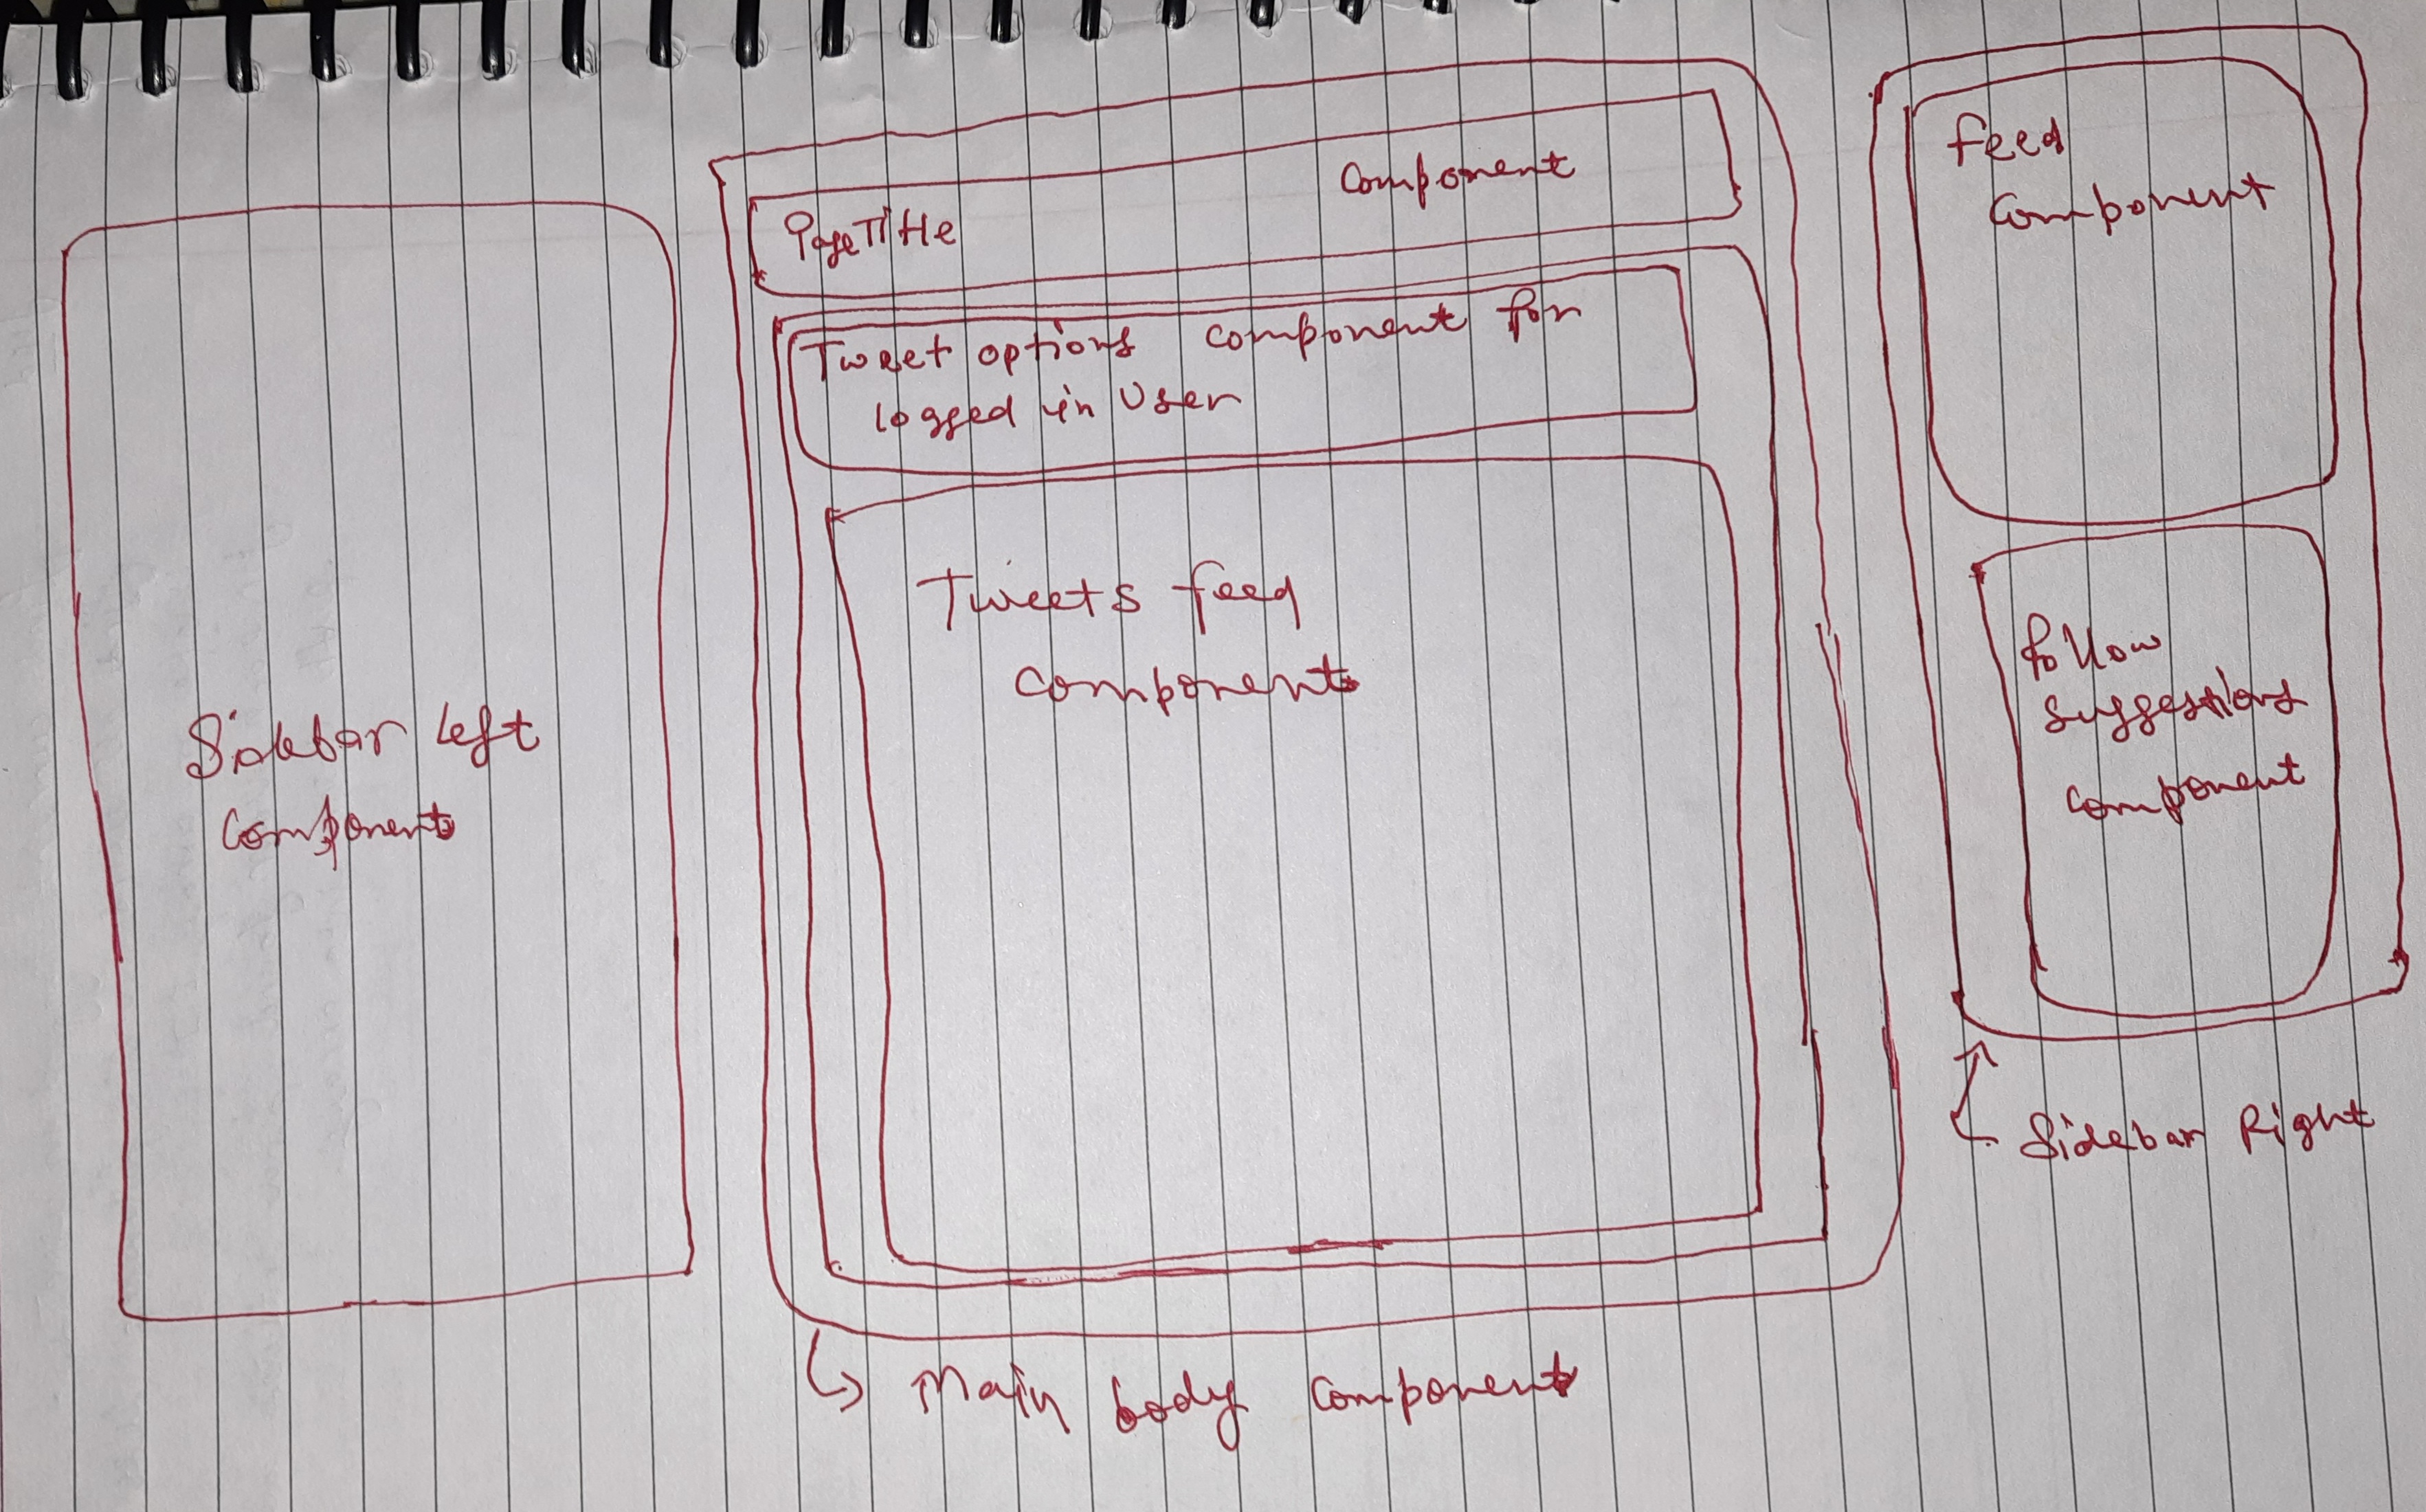 Sidebar Left
Component
PageTitle Component
Tweet options component for
logged in User
Tweets feed
component
↳ Main body component
feed
Component
follow
suggestions
component
Sidebar Right